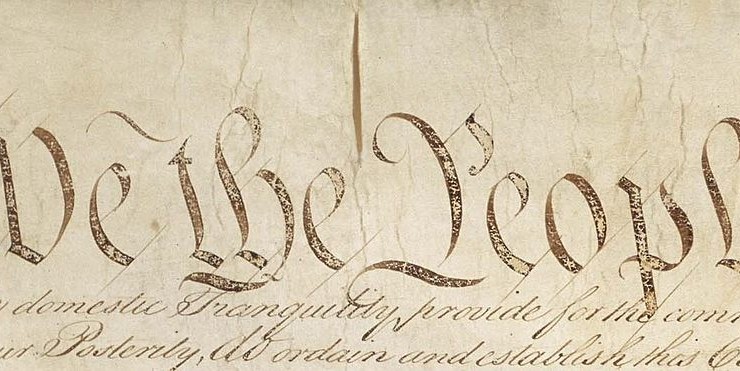 We the Peopl
domestic Tranquility, provide for the comm
ur Posterity, do ordain and establish this C